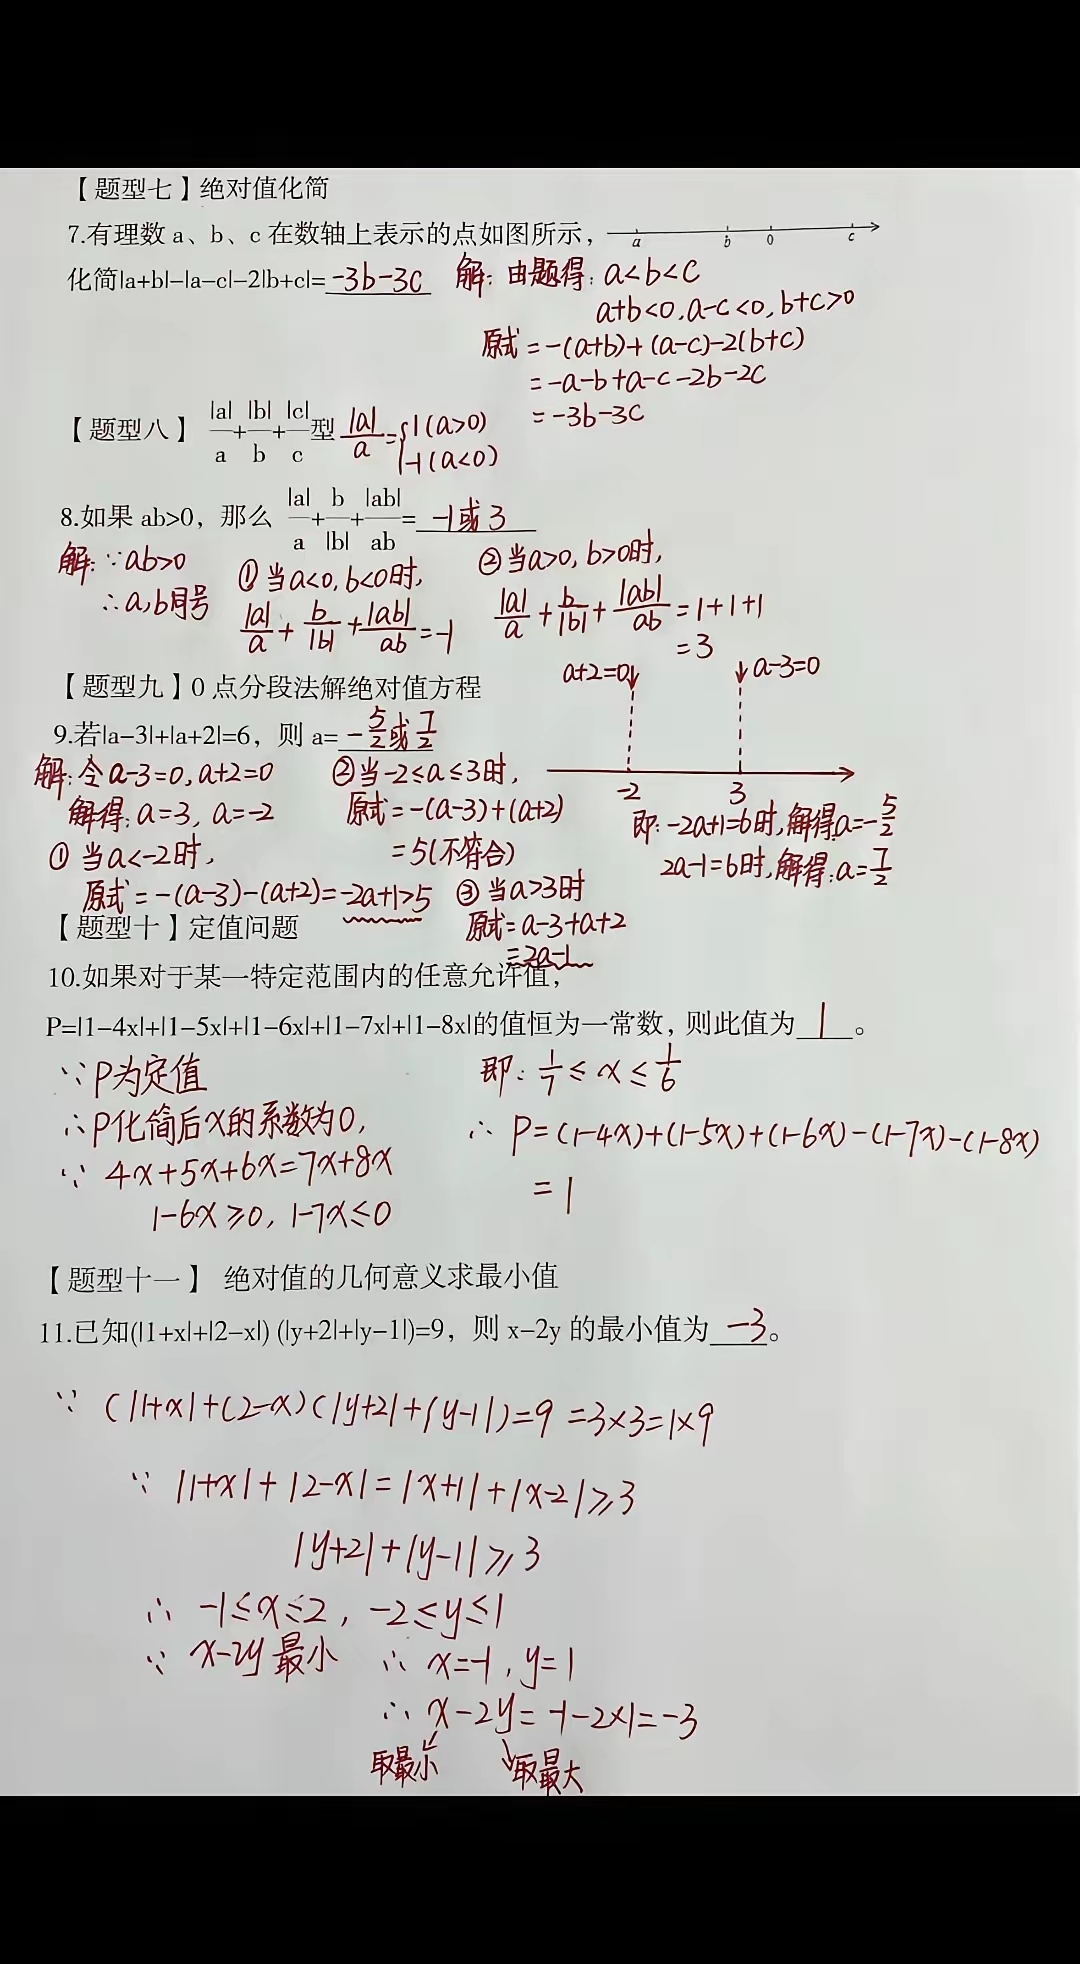 【题型七】绝对值化简
7.有理数 a、b、c 在数轴上表示的点如图所示，
a b 0 c
化简|a+b|-|a-c|-2|b+c|= -3b-3c
解：由题得：a<b<c
a+b<0,a-c<0,b+c>0
原式=-(a+b)+(a-c)-2(b+c)
=-a-b+a-c-2b-2c
=-3b-3c
【题型八】 |a|/a+|b|/b+|c|/c型 |a|/a={1(a>0)
-1(a<0)
8.如果 ab>0，那么 |a|/a+b/|b|+|ab|/ab= -1或3
解：∵ab>0
∴a,b同号
①当a<0,b<0时,
|a|/a+b/|b|+|ab|/ab=-1
②当a>0,b>0时,
|a|/a+b/|b|+|ab|/ab=1+1+1
=3
【题型九】0 点分段法解绝对值方程
a+2=0 a-3=0
-2 3
9.若|a-3|+|a+2|=6，则 a= -5/2或7/2
解：令a-3=0,a+2=0
解得：a=3, a=-2
①当a<-2时,
原式=-(a-3)-(a+2)=-2a+1>5
②当-2≤a≤3时,
原式=-(a-3)+(a+2)
=5(不符合)
③当a>3时
原式=a-3+a+2
=2a-1
即:-2a+1=6时,解得a=-5/2
2a-1=6时,解得:a=7/2
【题型十】定值问题
10.如果对于某一特定范围内的任意允许值，
P=|1-4x|+|1-5x|+|1-6x|+|1-7x|+|1-8x|的值恒为一常数，则此值为 1 。
∵P为定值
∴P化简后x的系数为0,
∵ 4x+5x+6x=7x+8x
1-6x≥0, 1-7x≤0
即：1/7≤x≤1/6
∴ P=(1-4x)+(1-5x)+(1-6x)-(1-7x)-(1-8x)
=1
【题型十一】 绝对值的几何意义求最小值
11.已知(|1+x|+|2-x|) (|y+2|+|y-1|)=9，则 x-2y 的最小值为 -3 。
∵ (|1+x|+(2-x)(|y+2|+|y-1|)=9=3×3=1×9
∵ |1+x|+|2-x|=|x+1|+|x-2|≥3
|y+2|+|y-1|≥3
∴ -1≤x≤2, -2≤y≤1
∵ x-2y最小 ∴ x=-1, y=1
∴ x-2y=-1-2×1=-3
取最小 取最大